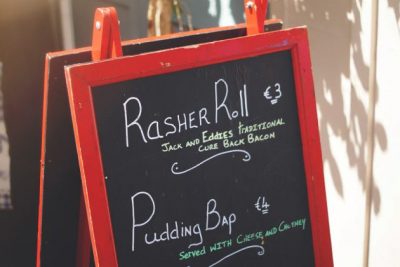 Rasher Roll €3
Jack and Eddies traditional
cure Back Bacon
Pudding Bap €4
Served with Cheese and Chutney